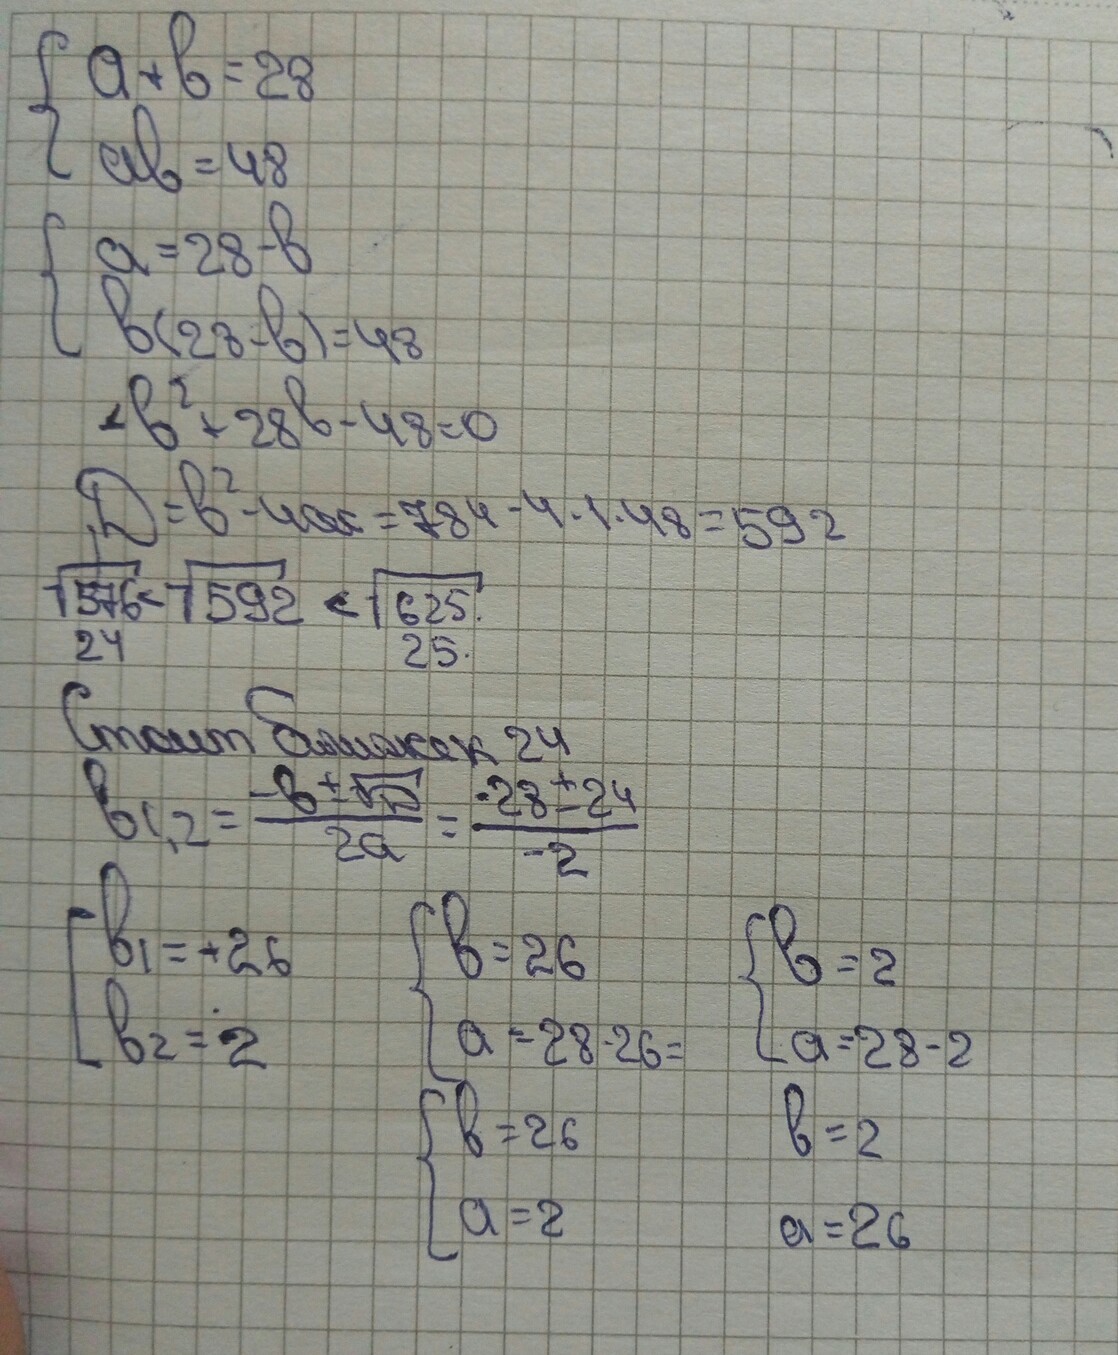 a+b=28
ab=48
a=28-b
b(28-b)=48
-b²+28b-48=0
D=b²-4ac=784-4·1·48=592
√576<√592<√625.
24 25.
Стоит ближе к 24
b1,2= (-b±√D)/2a = (-28±24)/-2
b1=+26 b=26 b=2
b2=2 a=28-26= a=28-2
b=26 b=2
a=2 a=26